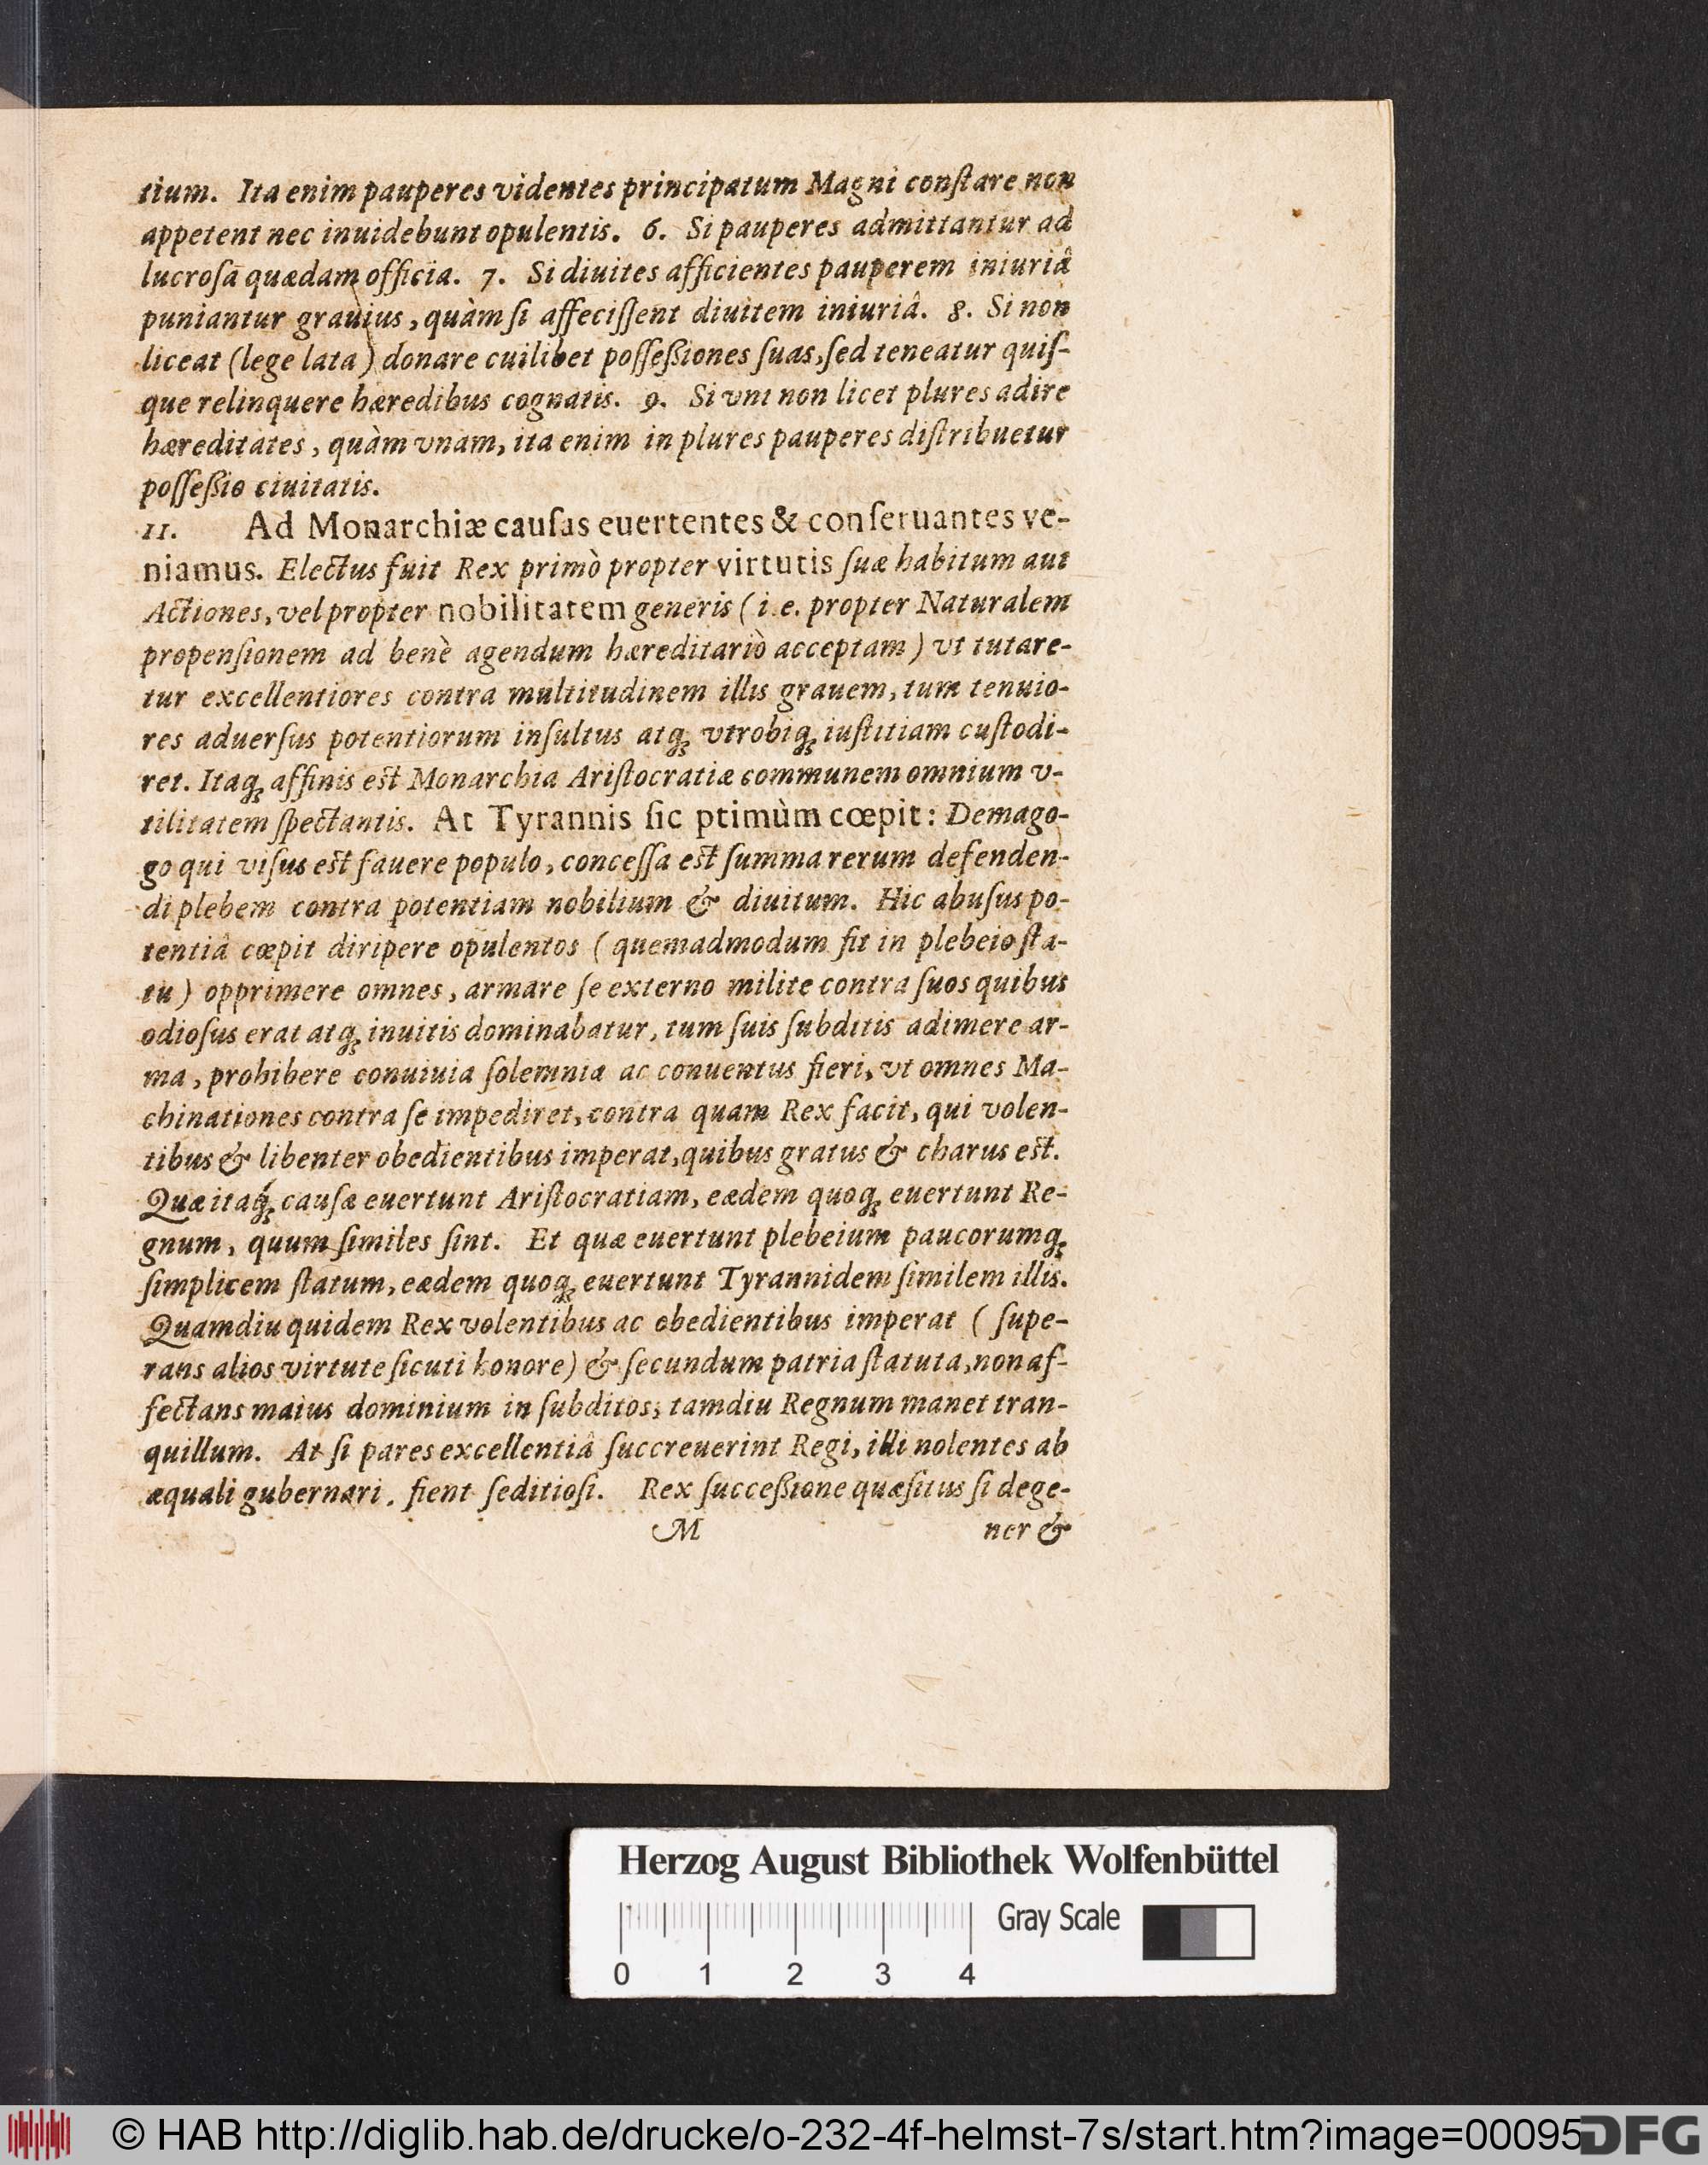 tium. Ita enim pauperes videntes principatum Magni conſtare non
appetent nec inuidebunt opulentis. 6. Si pauperes admittantur ad
lucroſa quædam officia. 7. Si diuites afficientes pauperem iniuriâ
puniantur grauius, quàm ſi affeciſſent diuitem iniuriâ. 8. Si non
liceat (lege lata) donare cuilibet poſſeßiones ſuas, ſed teneatur quiſ-
que relinquere hæredibus cognatis. 9. Si vni non licet plures adire
hæreditates, quàm vnam, ita enim in plures pauperes diſtribuetur
poſſeßio ciuitatis.
11. Ad Monarchiæ cauſas euertentes & conſeruantes ve-
niamus. Electus fuit Rex primò propter virtutis ſuæ habitum aut
Actiones, vel propter nobilitatem generis (i.e. propter Naturalem
propenſionem ad benè agendum hæreditariò acceptam) vt tutare-
tur excellentiores contra multitudinem illis grauem, tum tenuio-
res aduerſus potentiorum inſultus atq; vtrobiq; iuſtitiam cuſtodi-
ret. Itaq; affinis eſt Monarchia Ariſtocratiæ communem omnium v-
tilitatem ſpectantis. At Tyrannis ſic ptimùm cœpit: Demago-
go qui viſus eſt fauere populo, conceſſa eſt ſumma rerum defenden-
di plebem contra potentiam nobilium & diuitum. Hic abuſus po-
tentiâ cœpit diripere opulentos (quemadmodum fit in plebeio ſta-
tu) opprimere omnes, armare ſe externo milite contra ſuos quibus
odioſus erat atq; inuitis dominabatur, tum ſuis ſubditis adimere ar-
ma, prohibere conuiuia ſolemnia ac conuentus fieri, vt omnes Ma-
chinationes contra ſe impediret, contra quam Rex facit, qui volen-
tibus & libenter obedientibus imperat, quibus gratus & charus eſt.
Quæ itaq; cauſæ euertunt Ariſtocratiam, eædem quoq; euertunt Re-
gnum, quum ſimiles ſint. Et quæ euertunt plebeium paucorumq;
ſimplicem ſtatum, eædem quoq; euertunt Tyrannidem ſimilem illis.
Quamdiu quidem Rex volentibus ac obedientibus imperat (ſupe-
rans alios virtute ſicuti honore) & ſecundum patria ſtatuta, non af-
fectans maius dominium in ſubditos; tamdiu Regnum manet tran-
quillum. At ſi pares excellentiâ ſuccreuerint Regi, illi nolentes ab
æquali gubernari, fient ſeditioſi. Rex ſucceßione quæſitus ſi dege-
M ner &
Herzog August Bibliothek Wolfenbüttel
Gray Scale
0 1 2 3 4
© HAB http://diglib.hab.de/drucke/o-232-4f-helmst-7s/start.htm?image=00095
DFG